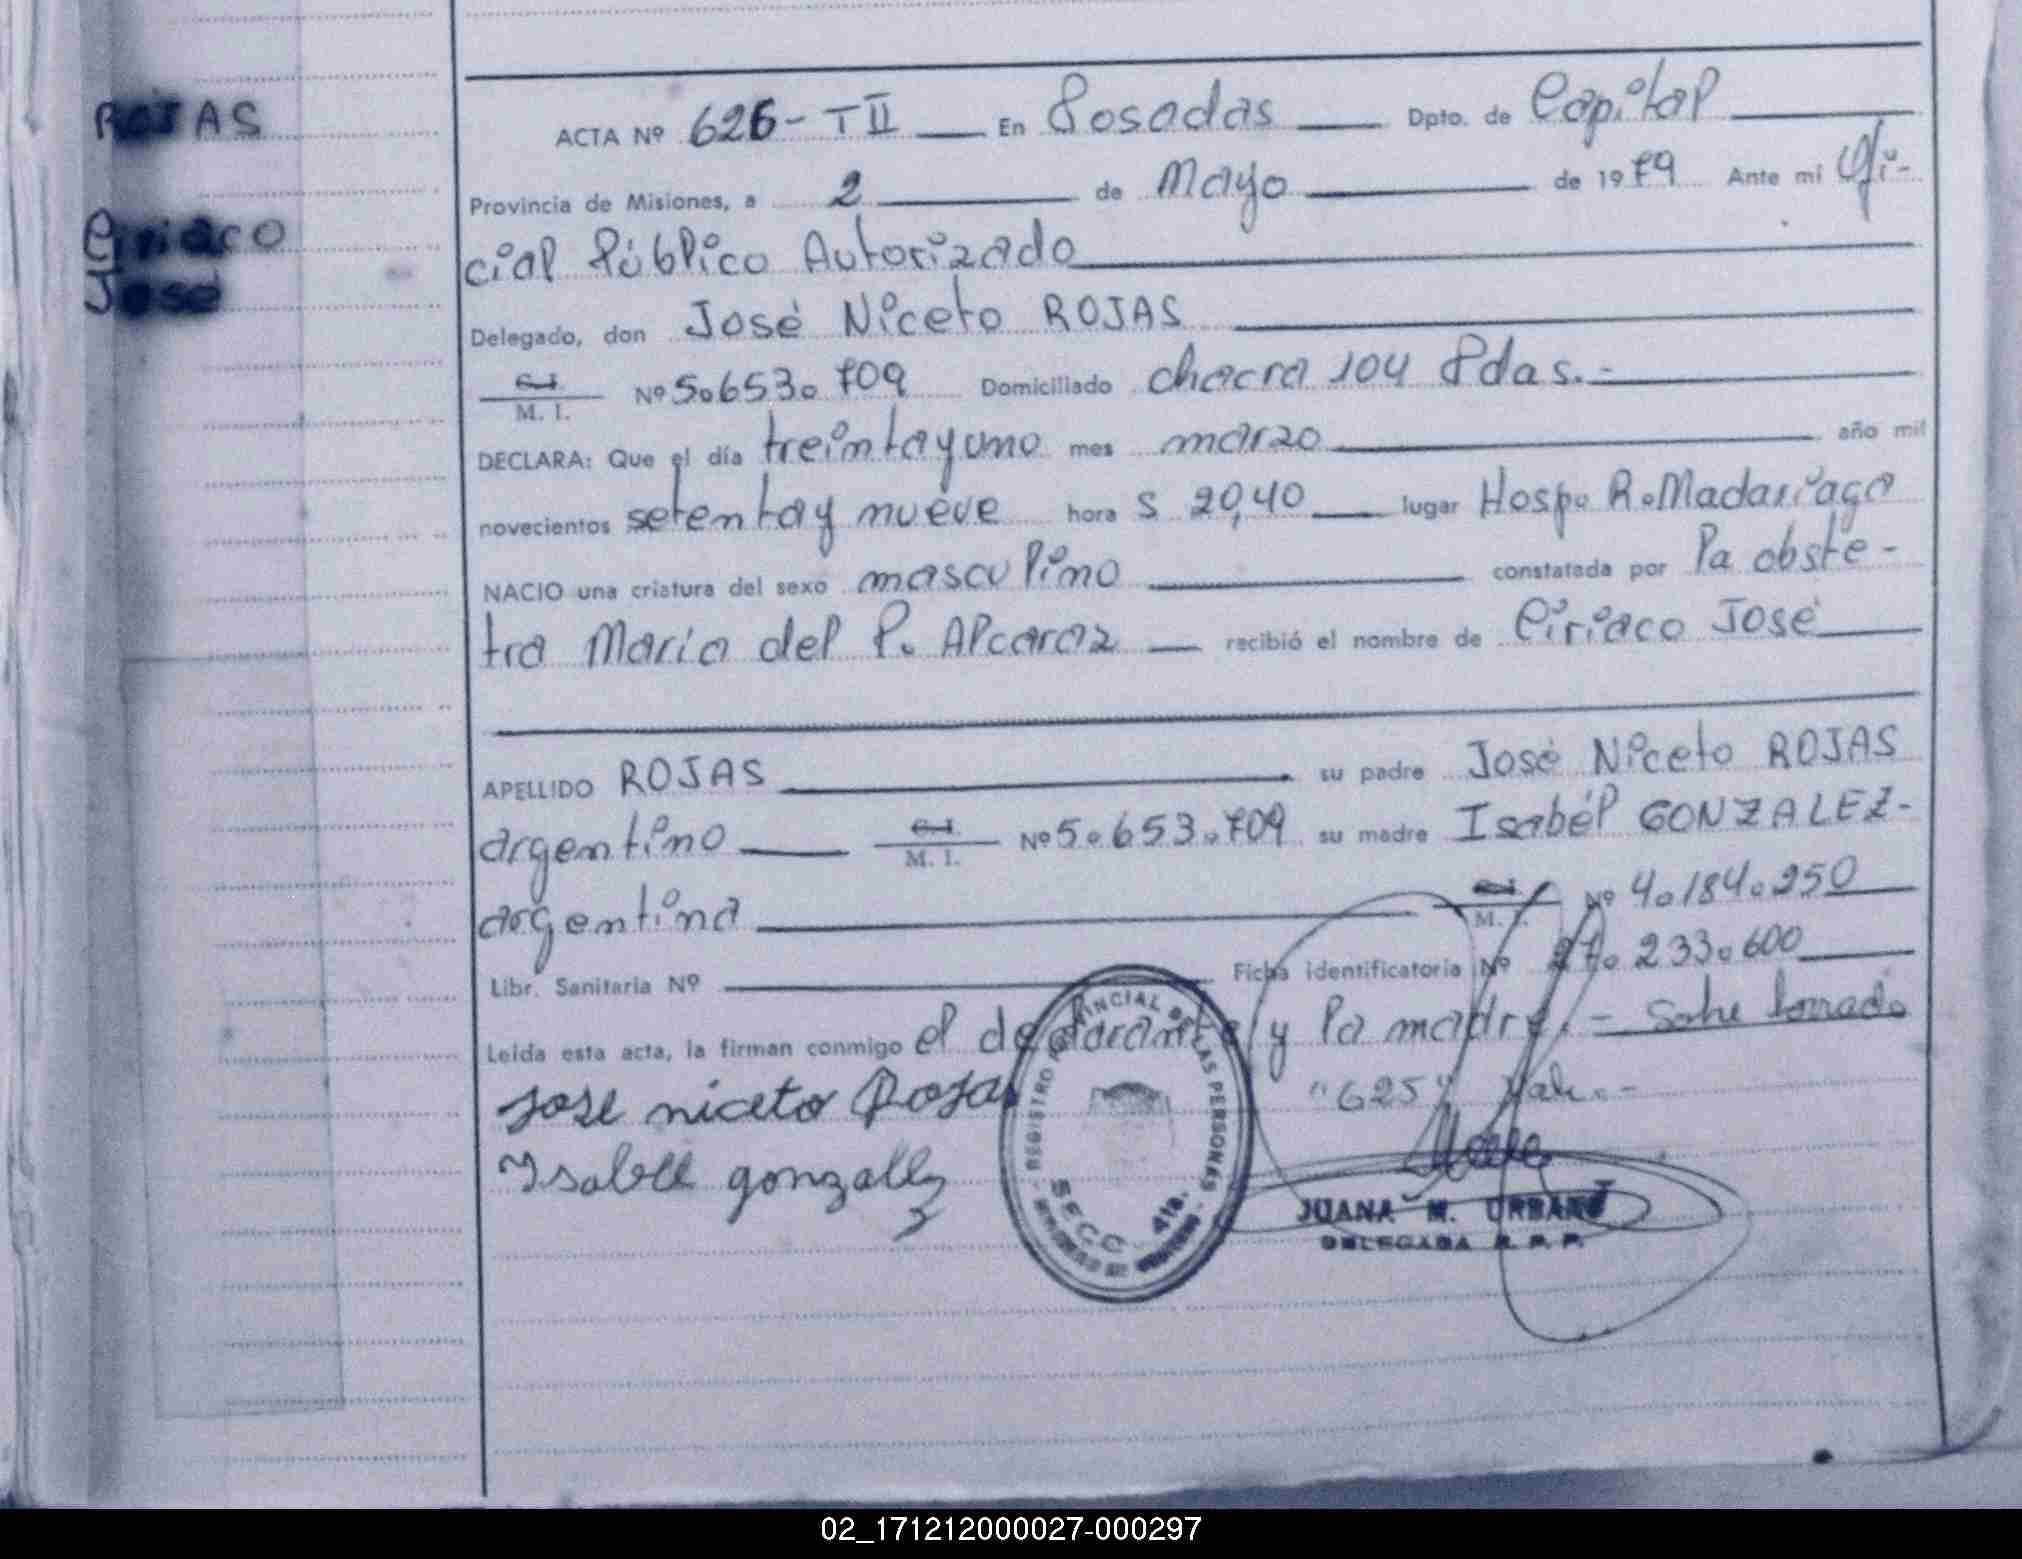 ROJAS
Ciriaco
José
ACTA Nº 626-TII En Posadas Dpto. de Capital
Provincia de Misiones, a 2 de Mayo de 1979 Ante mi Ofi-
cial Público Autorizado
Delegado, don José Niceto ROJAS
C.I. M. I. Nº 5.653.709 Domiciliado chacra 104 Pdas.-
DECLARA: Que el día treintayuno mes marzo año mil
novecientos setentay nueve hora s 20,40 lugar Hosp. R.Madariaga
NACIO una criatura del sexo masculino constatada por la obste-
tra María del P. Alcaraz recibió el nombre de Ciriaco José
APELLIDO ROJAS su padre José Niceto ROJAS
argentino C.I. M. I. Nº 5.653.709 su madre Isabél GONZALEZ-
argentina C.I. M. I. Nº 4.184.250
Libr. Sanitaria Nº Ficha identificatoria Nº 27.233.600
Leída esta acta, la firman conmigo el declarante y la madre.- Sobre borrado
"625" Vale.-
Jose niceto Rojas
Ysabel gonzalez
REGISTRO PROVINCIAL DE LAS PERSONAS
SECC. 4ta.
JUANA M. URBANO
DELEGADA R. P. P.
02_171212000027-000297